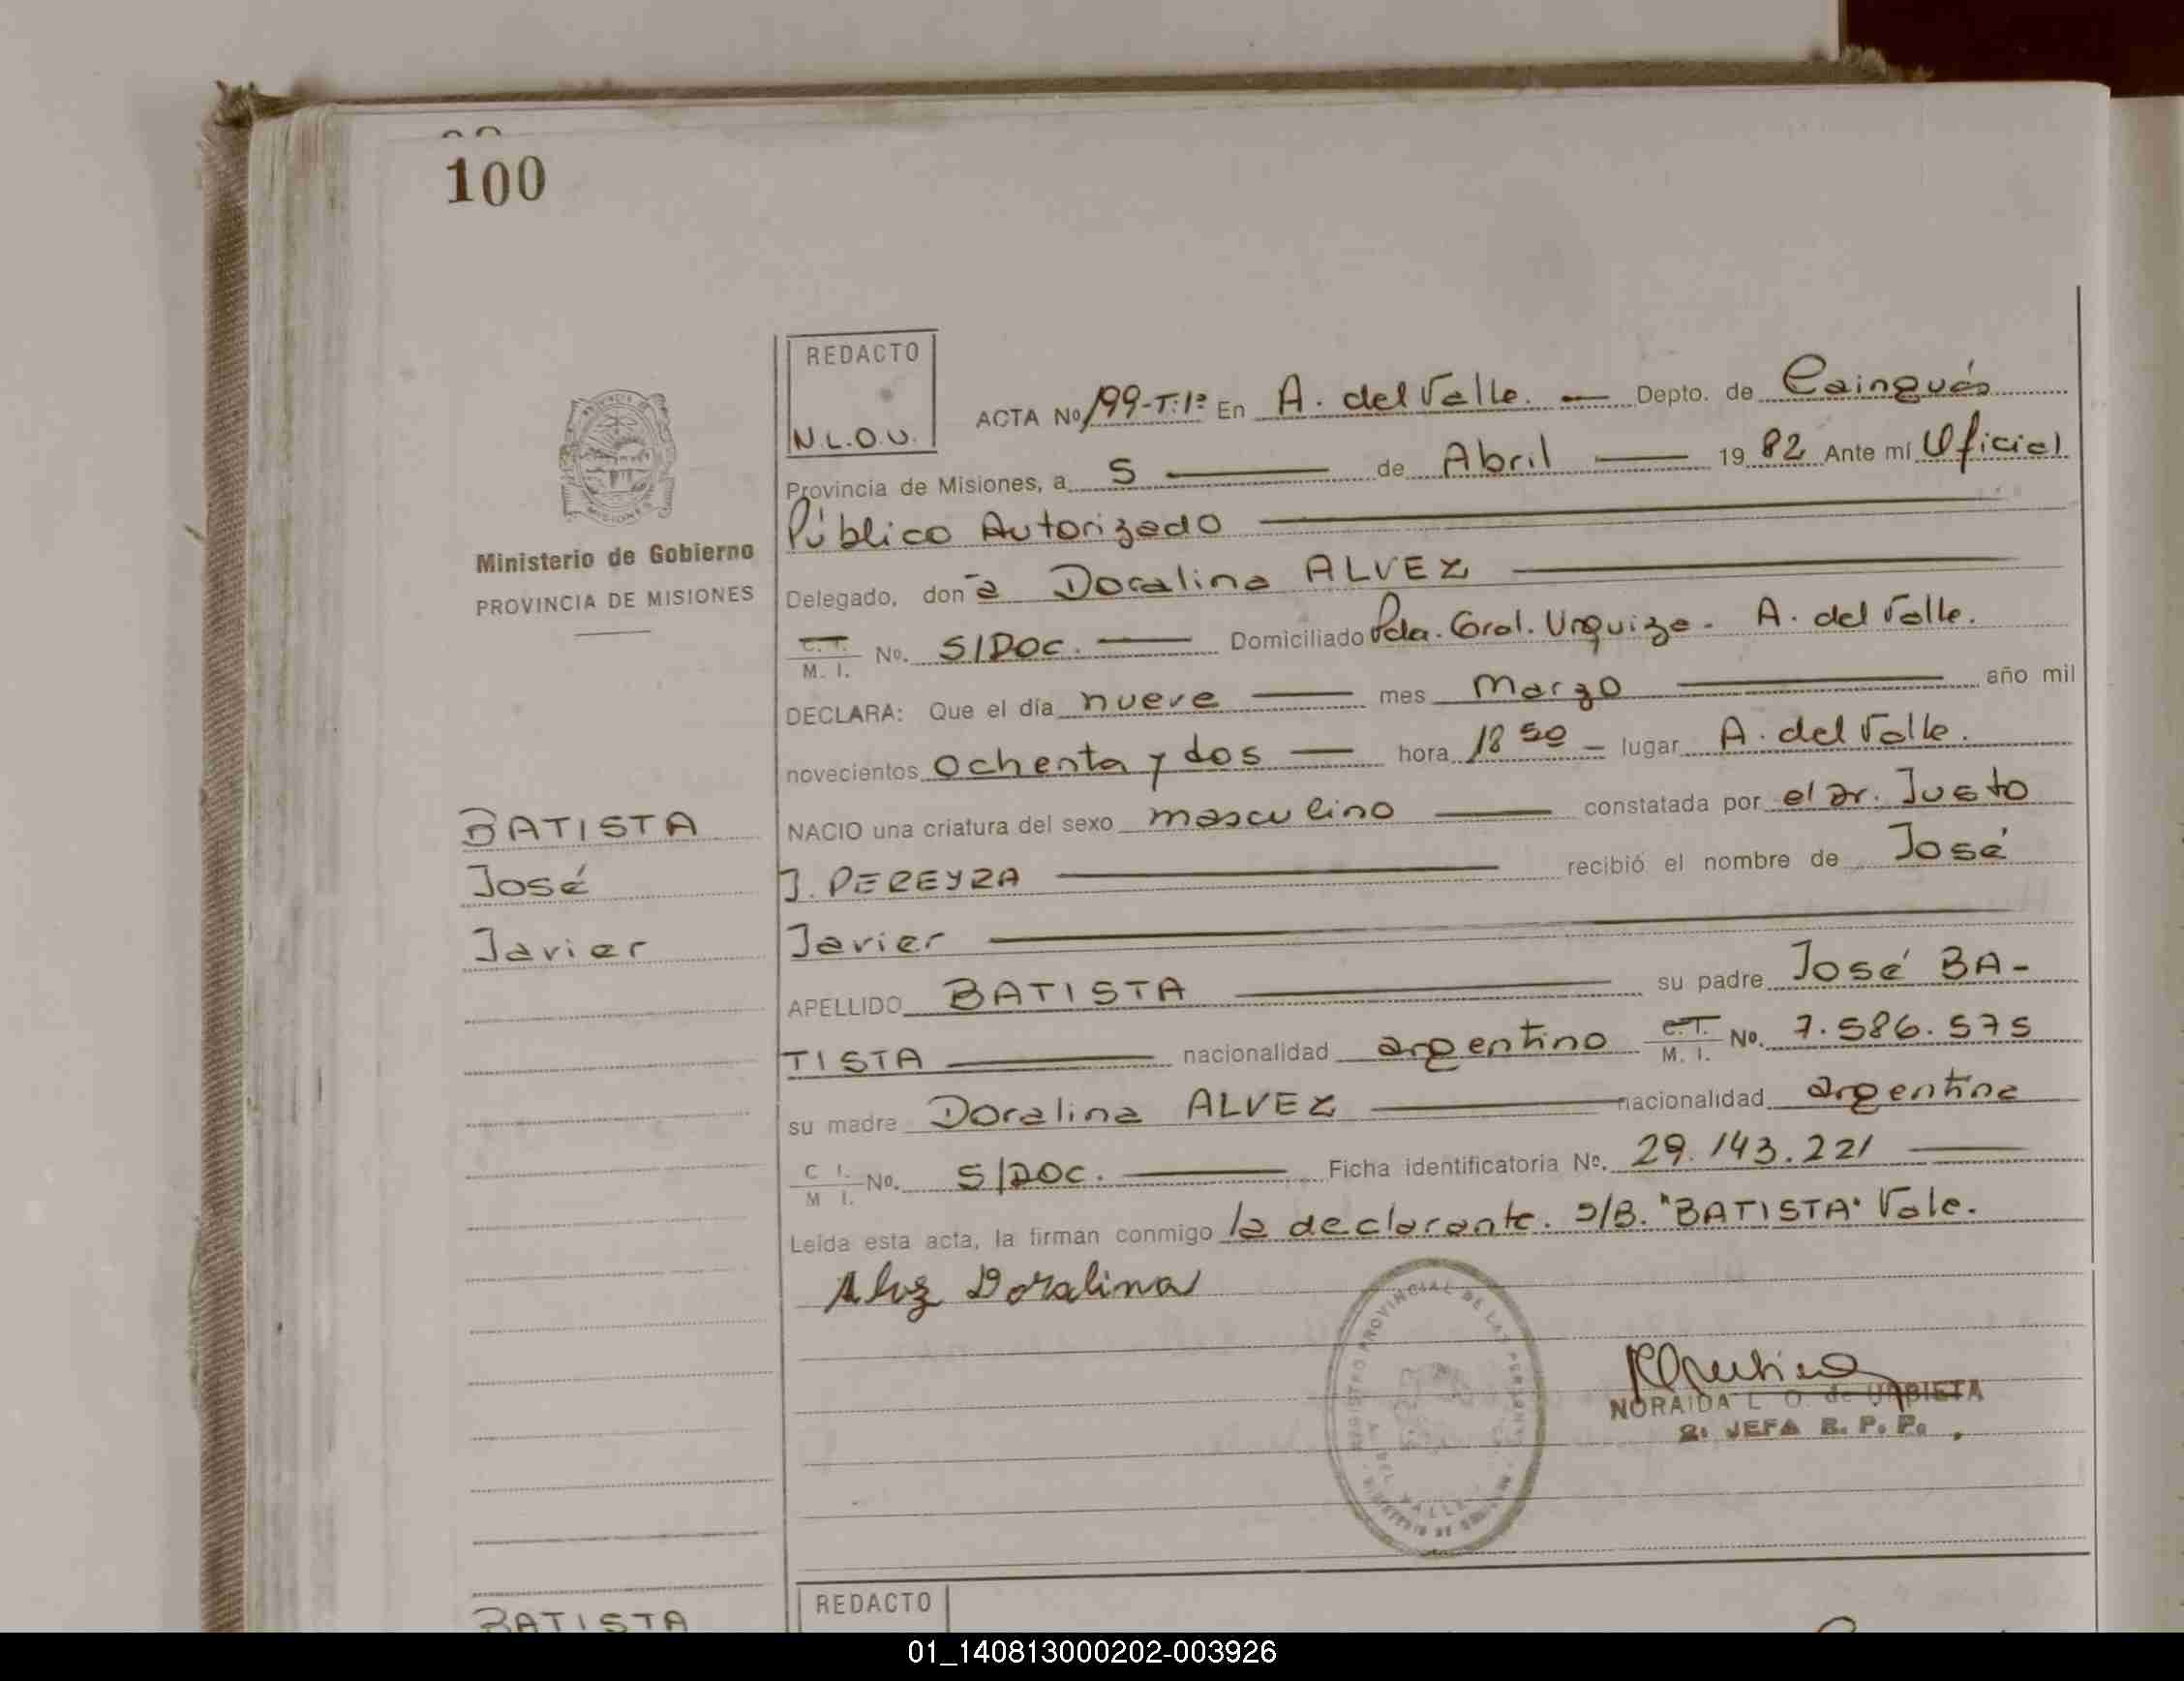 100
REDACTO
N.L.O.U.
ACTA No 199-T:1º En A. del Valle. — Depto. de Cainguás
Provincia de Misiones, a 5 — de Abril — 19 82 Ante mí Oficial
Público Autorizado
Ministerio de Gobierno
PROVINCIA DE MISIONES
Delegado, don a Doralina ALVEZ
C.I. M. I. No. S/DOC. — Domiciliado Pda. Gral. Urquiza - A. del Valle.
DECLARA: Que el día nueve — mes Marzo — año mil
novecientos Ochenta y dos — hora 18 50 — lugar A. del Valle.
BATISTA
José
Javier
NACIO una criatura del sexo masculino — constatada por el Dr. Justo
J. PEREYRA — recibió el nombre de José
Javier
APELLIDO BATISTA — su padre José BA-
TISTA — nacionalidad argentino C.I. M. I. No. 7.586.575
su madre Doralina ALVEZ — nacionalidad argentina
C I. M I. No. S/DOC. — Ficha identificatoria No. 29.143.221 —
Leída esta acta, la firman conmigo la declarante. S/B. "BATISTA" Vale.
Alvz Doralina
REGISTRO PROVINCIAL DE LAS PERSONAS
A. DEL VALLE
MINISTERIO DE GOBIERNO
NORAIDA L. O. de URBIETA
2ª JEFA R. P. P.
BATISTA
REDACTO
01_140813000202-003926